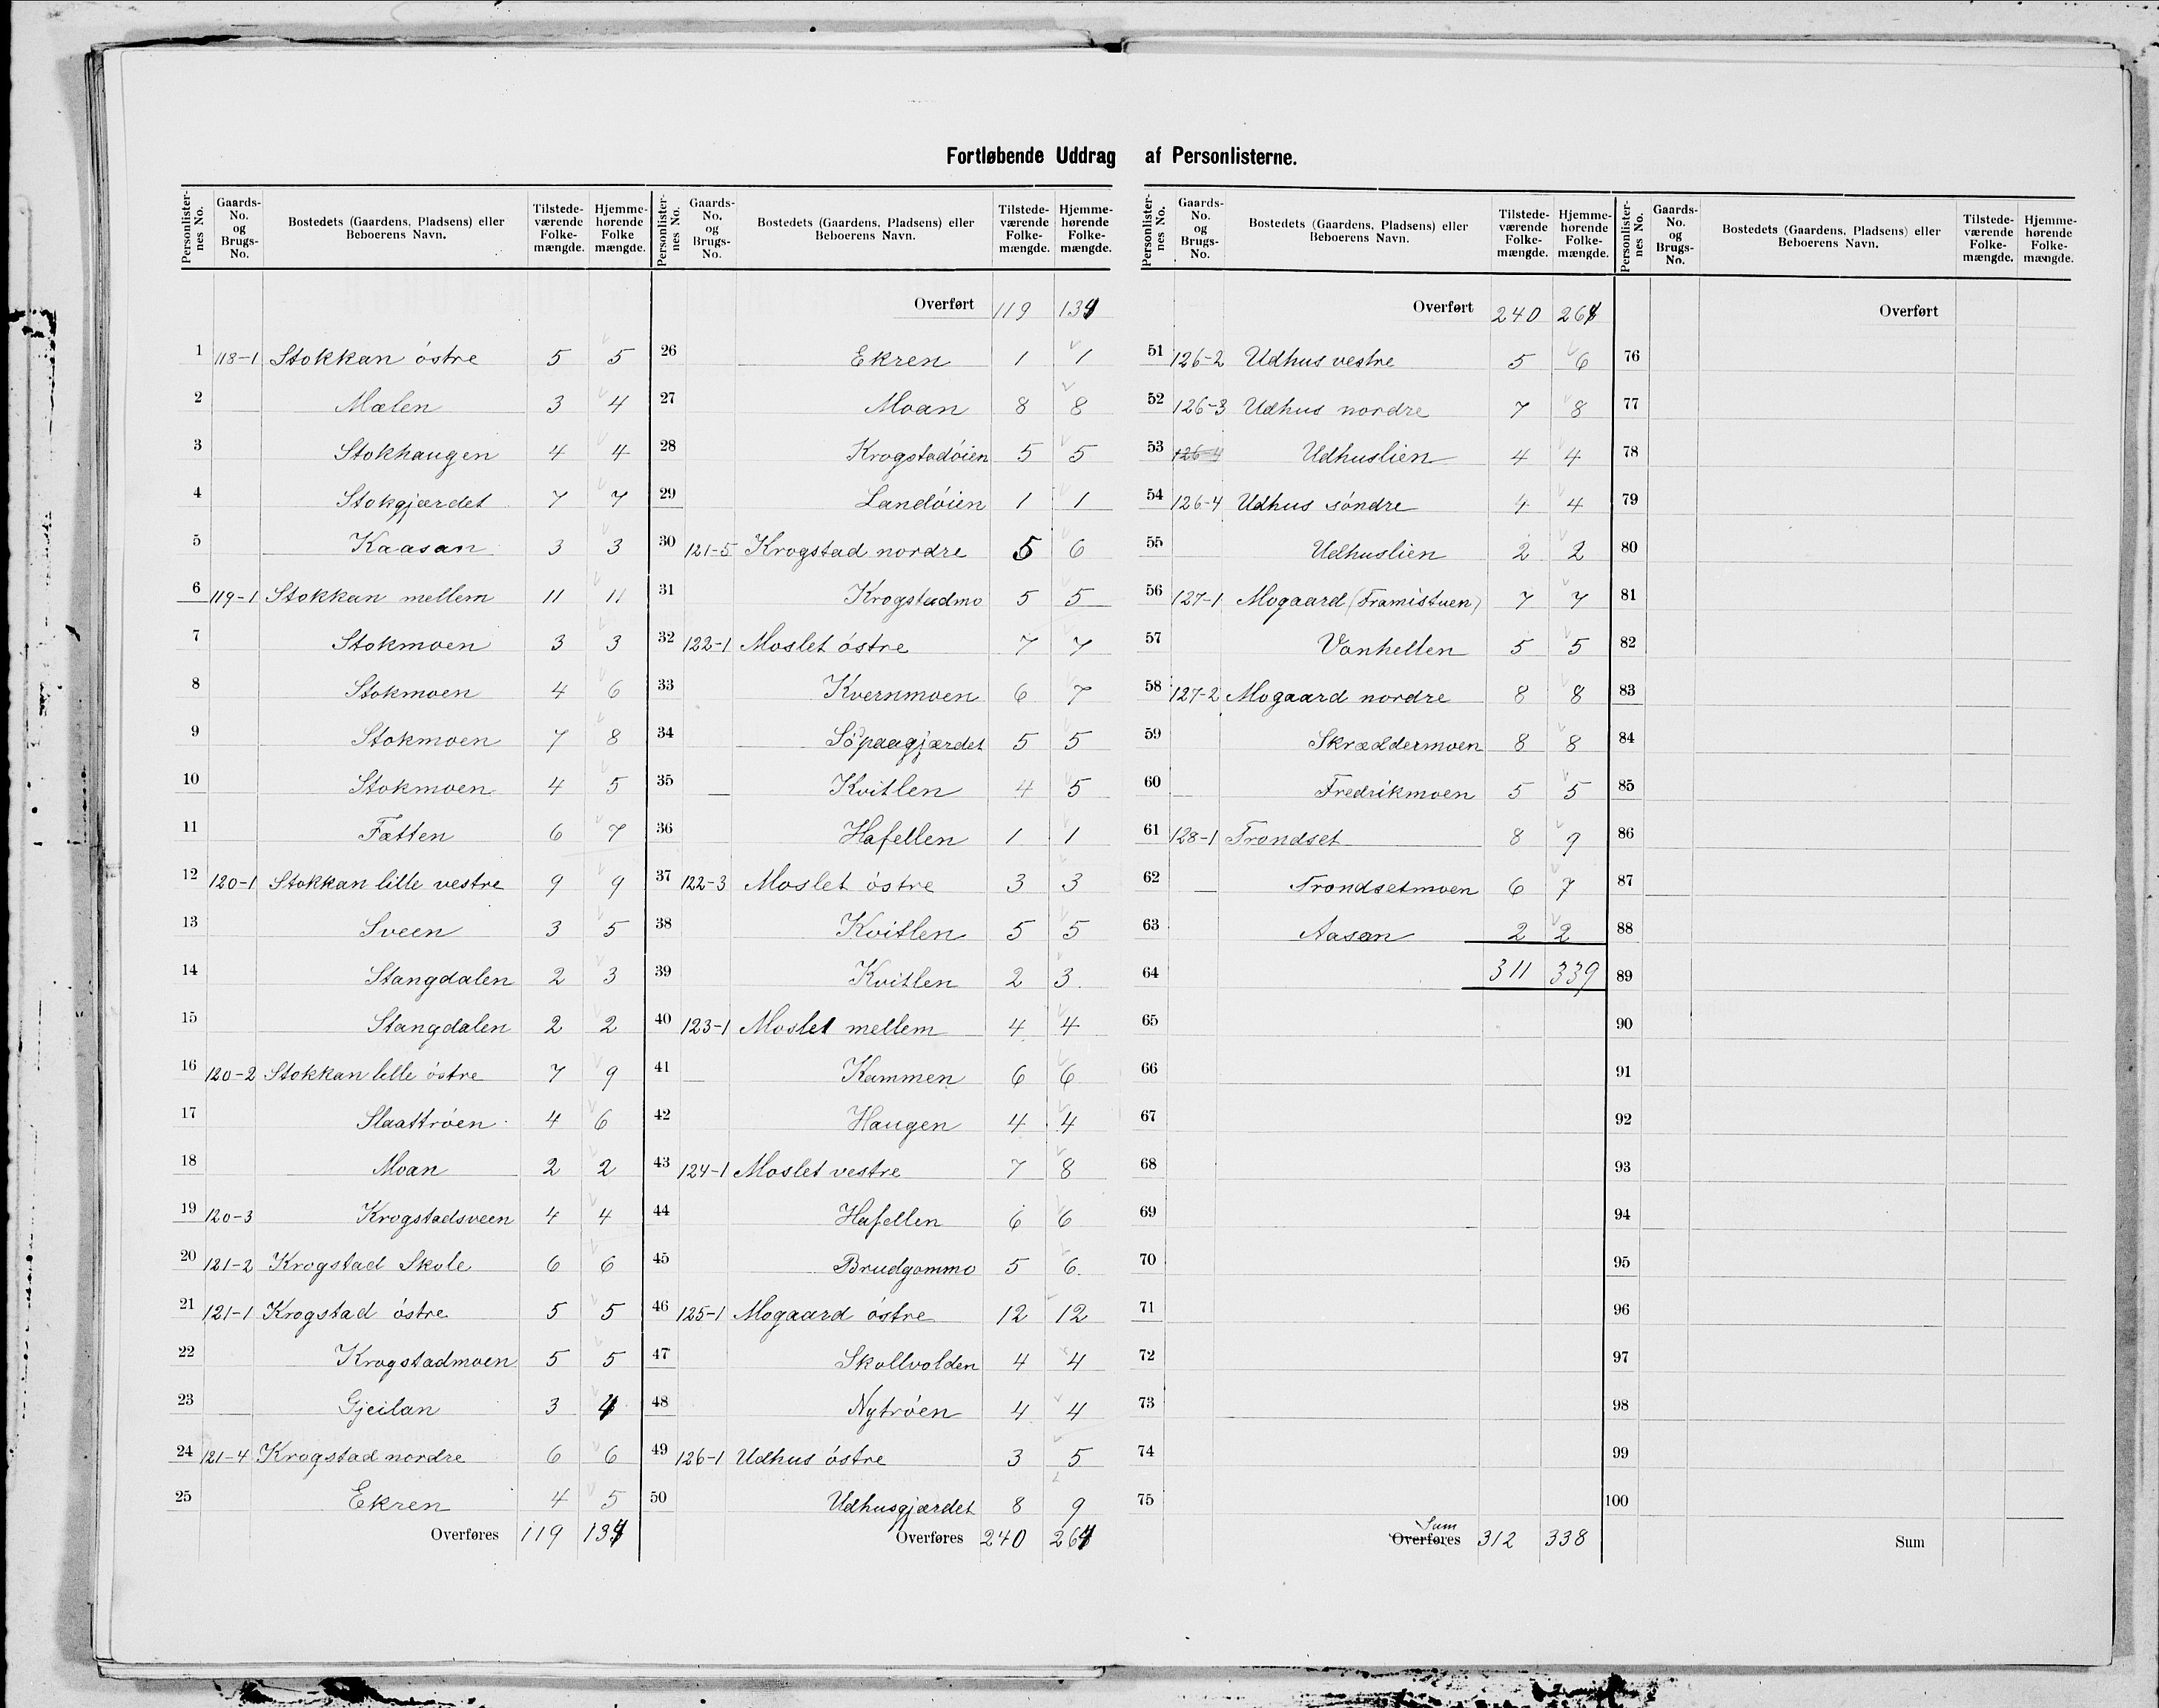 Fortløbende Uddrag af Personlisterne.
Personlister-nes No. | Gaards-No. og Brugs-No. | Bostedets (Gaardens, Pladsens) eller Beboerens Navn. | Tilstede-værende Folke-mængde. | Hjemme-hørende Folke mængde.
1 118-1 Stokkan östre 5 5
2 Mælen 3 4
3 Stokhaugen 4 4
4 Stokgjærdet 7 7
5 Kaasan 3 3
6 119-1 Stokkan mellem 11 11
7 Stokmoen 3 3
8 Stokmoen 4 6
9 Stokmoen 7 8
10 Stokmoen 4 5
11 Fætten 6 7
12 120-1 Stokkan lille vestre 9 9
13 Sveen 3 5
14 Stangdalen 2 3
15 Stangdalen 2 2
16 120-2 Stokkan lille östre 7 9
17 Slaattröen 4 6
18 Moan 2 2
19 120-3 Krogstadsveen 4 4
20 121-2 Krogstad Skole 6 6
21 121-1 Krogstad östre 5 5
22 Krogstadmoen 5 5
23 Gjeilan 3 4
24 121-4 Krogstad nordre 6 6
25 Ekren 4 5
Overføres 119
Personlister-nes No. | Gaards-No. og Brugs-No. | Bostedets (Gaardens, Pladsens) eller Beboerens Navn. | Tilstede-værende Folke-mængde. | Hjemme-hørende Folke-mængde.
Overført 119
26 Ekren 1 1
27 Moan 8 8
28 Krogstadöien 5 5
29 Landöien 1 1
30 121-5 Krogstad nordre 5 6
31 Krogstadmo 5 5
32 122-1 Moslet östre 7 7
33 Kvernmoen 6 7
34 Söpaagjærdet 5 5
35 Kvitlen 4 5
36 Hafellen 1 1
37 122-3 Moslet östre 3 3
38 Kvitlen 5 5
39 Kvitlen 2 3
40 123-1 Moslet mellem 4 4
41 Kammen 6 6
42 Haugen 4 4
43 124-1 Moslet vestre 7 8
44 Hafellen 6 6
45 Brudgommo 5 6
46 125-1 Mogaard östre 12 12
47 Skollvolden 4 4
48 Nytröen 4 4
49 126-1 Udhus östre 3 5
50 Udhusgjærdet 8 9
Overføres 240
Personlister-nes No. | Gaards-No. og Brugs-No. | Bostedets (Gaardens, Pladsens) eller Beboerens Navn. | Tilstede-værende Folke-mængde. | Hjemme-hørende Folke-mængde.
Overført 240
51 126-2 Udhus vestre 5 6
52 126-3 Udhus nordre 7 8
53 126-4 Udhuslien 4 4
54 126-4 Udhus söndre 4 4
55 Udhuslien 2 2
56 127-1 Mogaard (Framistuen) 7 7
57 Vonhellen 5 5
58 127-2 Mogaard nordre 8 8
59 Skræddermoen 8 8
60 Fredrikmoen 5 5
61 128-1 Trondset 8 9
62 Trondsetmoen 6 7
63 Aasan 2 2
64 311 339
65
66
67
68
69
70
71
72
73
74
75
Sum
Overføres 312 338
Personlister-nes No. | Gaards-No. og Brugs-No. | Bostedets (Gaardens, Pladsens) eller Beboerens Navn. | Tilstede-værende Folke-mængde. | Hjemme-hørende Folke-mængde.
Overført
76
77
78
79
80
81
82
83
84
85
86
87
88
89
90
91
92
93
94
95
96
97
98
99
100
Sum